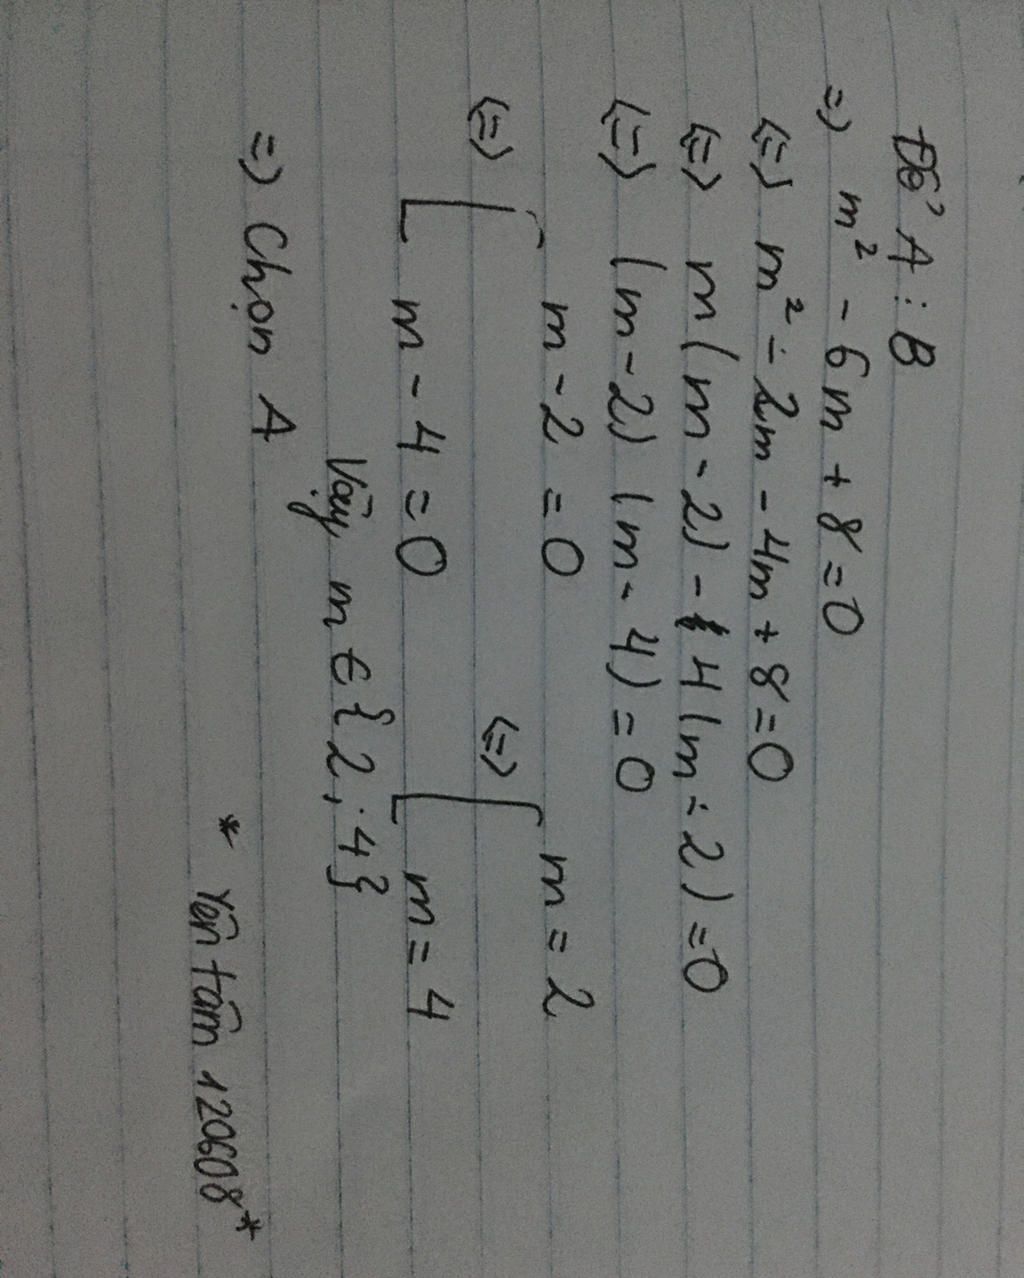 Để A ⋮ B
=) m² - 6m + 8 = 0
(=) m² - 2m - 4m + 8 = 0
(=) m(m - 2) - 4(m - 2) = 0
(=) (m - 2)(m - 4) = 0
(=) [ m - 2 = 0 (=) [ m = 2
m - 4 = 0 m = 4
Vậy m ∈ {2; 4}
=) Chọn A
* Yên tâm 120608 *